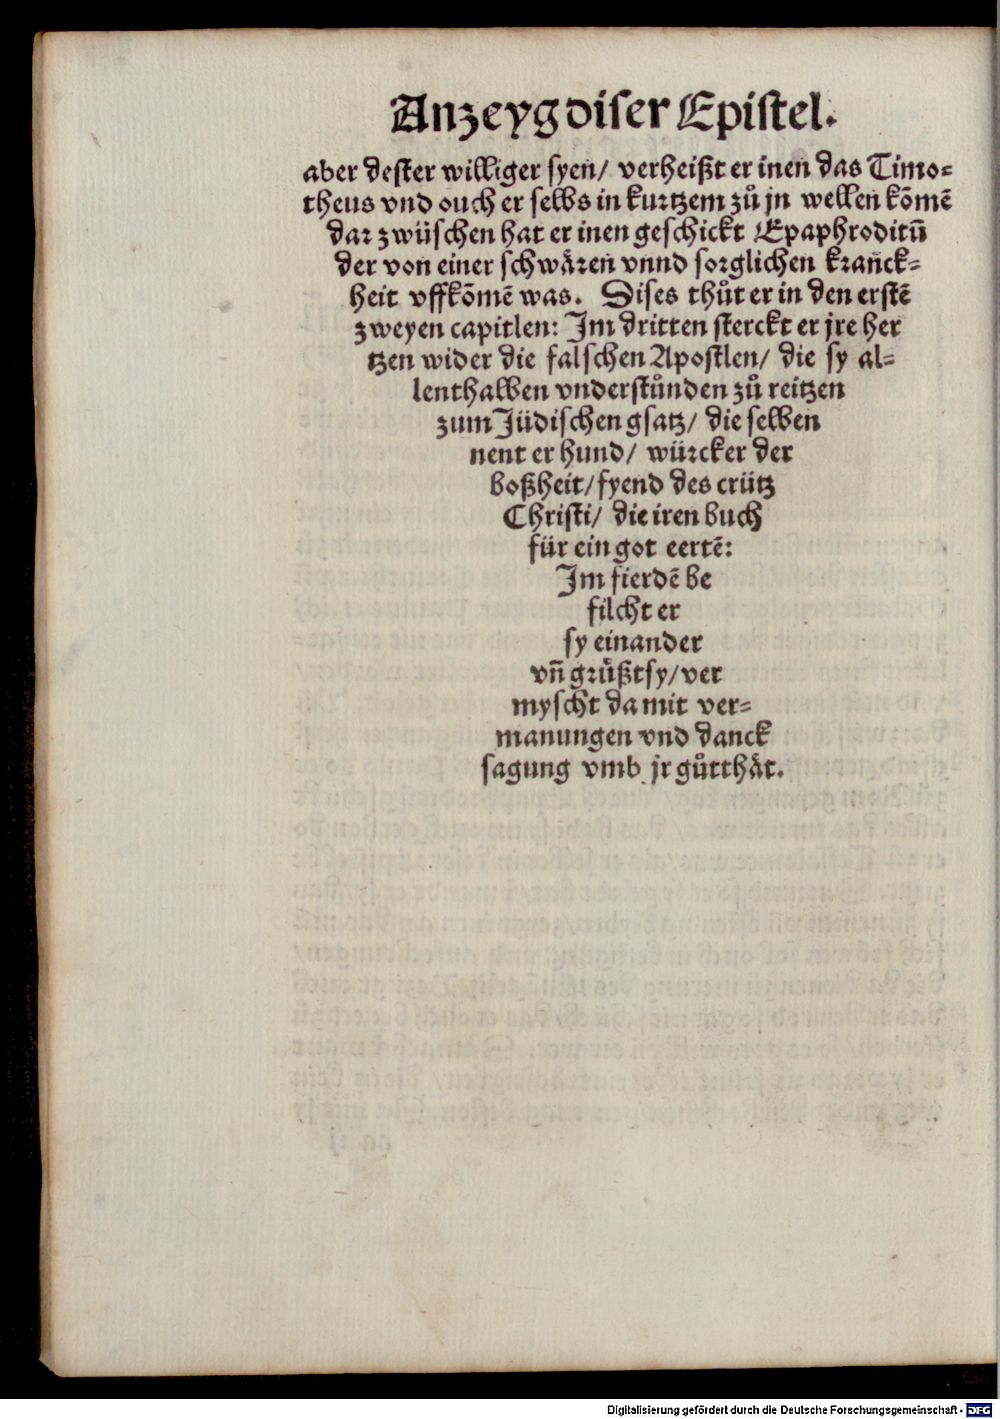 Anzeyg diser Epistel.
aber dester williger syen/ verheißt er inen das Timo⸗
theus vnd ouch er selbs in kurtzem zů jn wellen kõmẽ
dar zwüschen hat er inen geschickt Epaphroditũ
der von einer schwären vnnd sorglichen kranck⸗
heit vffkõmẽ was. Dises thůt er in den erstẽ
zweyen capitlen: Im dritten sterckt er jre her
tzen wider die falschen Apostlen/ die sy al⸗
lenthalben vnderstůnden zů reitzen
zum Jüdischen gsatz/ die selben
nent er hund/ würcker der
boßheit/ fyend des crütz
Christi/ die iren buch
für ein got eertẽ:
Im fierdẽ be
filcht er
sy einander
vñ grüßt sy/ ver
myscht damit ver⸗
manungen vnd danck
sagung vmb jr gůtthät.
Digitalisierung gefördert durch die Deutsche Forschungsgemeinschaft - DFG